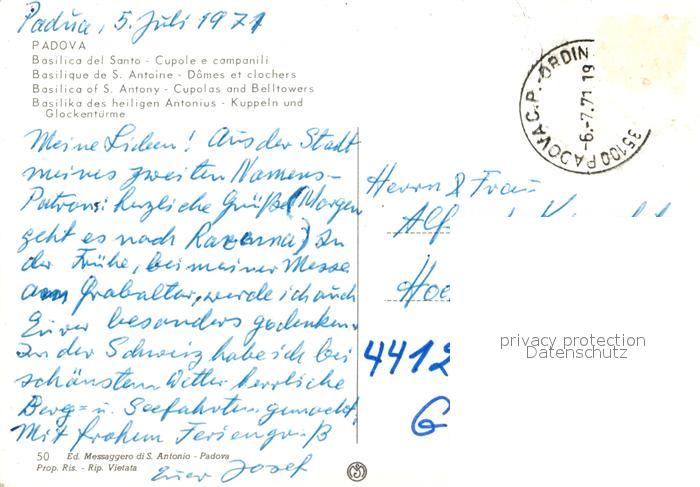 Padua, 5. Juli 1971
PADOVA
Basilica del Santo - Cupole e campanili
Basilique de S. Antoine - Dômes et clochers
Basilica of S. Antony - Cupolas and Belltowers
Basilika des heiligen Antonius - Kuppeln und
Glockentürme
Meine Lieben! Aus der Stadt
meines zweiten Namens-
Patrons: herzliche Grüße (Morgen
geht es nach Ravenna) In
der Frühe, bei meiner Messe
am Grabaltar, werde ich auch
Eurer besonders gedenken.
In der Schweiz habe ich bei
schönstem Wetter herrliche
Berg- u. Seefahrten gemacht.
Mit frohem Feriengruß
Euer Josef
50 Ed. Messaggero di S. Antonio - Padova
Prop. Ris. - Rip. Vietata
35100 PADOVA C.P. - ORDIN
-6.-7.71 19
Herrn & Frau
Alf
Hoe
4412
G
privacy protection
Datenschutz